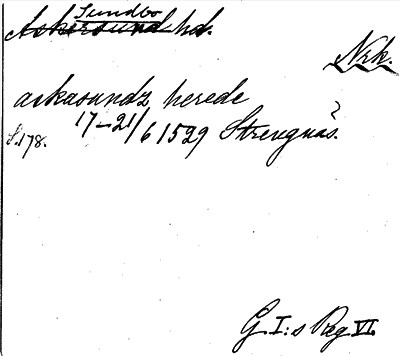 Sundbo
Askersund hd.
Nrk.
askasundz herede
S.178. 17-21/6 1529 Strengnäs?
G. I:s Reg VI.